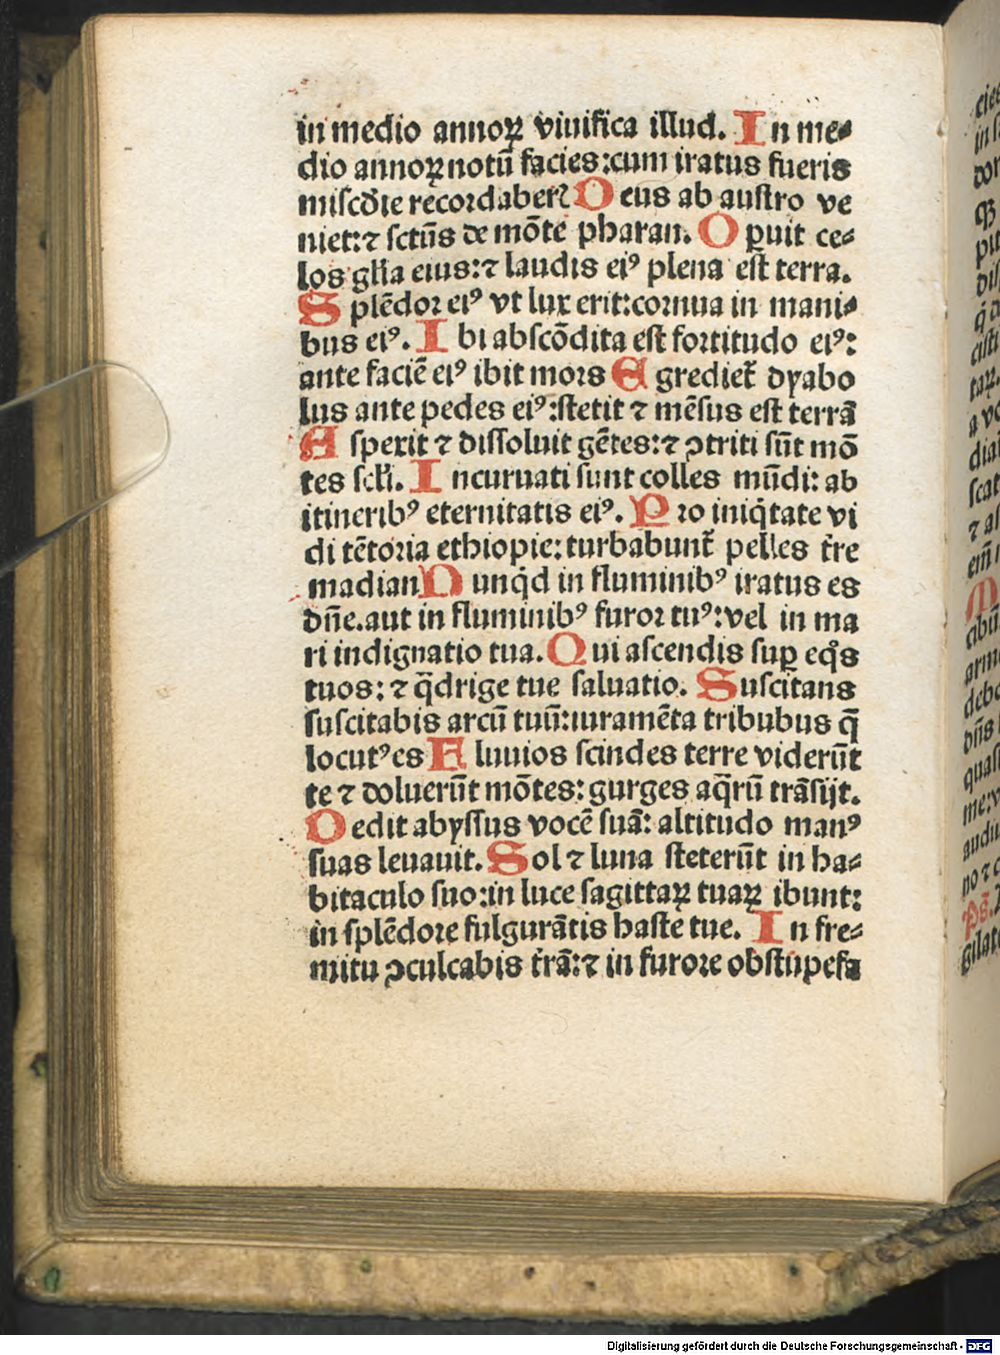 in medio annoꝝ viuifica illud. In me⸗
dio annoꝝ notū facies:cum iratus fueris
miſcd̄ie recordaberꝭ Deus ab auſtro ve
niet:⁊ ſctūs de mōte pharan. Oꝑuit ce⸗
los gl̄ia eius:⁊ laudis eiꝰ plena eſt terra.
Splēdor eiꝰ vt lux erit:cornua in mani⸗
bus eiꝰ. Ibi abſcōdita eſt fortitudo eiꝰ:
ante faciē eiꝰ ibit mors Egrediet̄ dyabo
lus ante pedes eiꝰ:ſtetit ⁊ mēſus eſt terrā
Aſpexit ⁊ diſſoluit gētes:⁊ ꝯtriti ſūt mō
tes ſcl̄i. Incuruati ſunt colles mūdi: ab
itineribꝰ eternitatis eiꝰ. Pro iniq̄tate vi
di tētoria ethiopie: turbabunt̄ pelles t̄re
madian Nunqd̄ in fluminibꝰ iratus es
dn̄e.aut in fluminibꝰ furor tuꝰ:vel in ma
ri indignatio tua. Qui aſcendis ſuꝑ eq̊s
tuos: ⁊ q̄drige tue ſaluatio. Suſcitans
ſuſcitabis arcū tuū:iuramēta tribubus q̄
locutꝰ es Fluuios ſcindes terre viderūt
te ⁊ doluerūt mōtes: gurges aq̄rū trāſijt.
Dedit abyſſus vocē ſuā: altitudo manꝰ
ſuas leuauit. Sol ⁊ luna ſteterūt in ha⸗
bitaculo ſuo:in luce ſagittaꝝ tuaꝝ ibunt:
in ſplēdore fulgurātis haſte tue. In fre⸗
mitu ꝯculcabis t̄rā:⁊ in furore obſtupefa
Digitalisierung gefördert durch die Deutsche Forschungsgemeinschaft - DFG